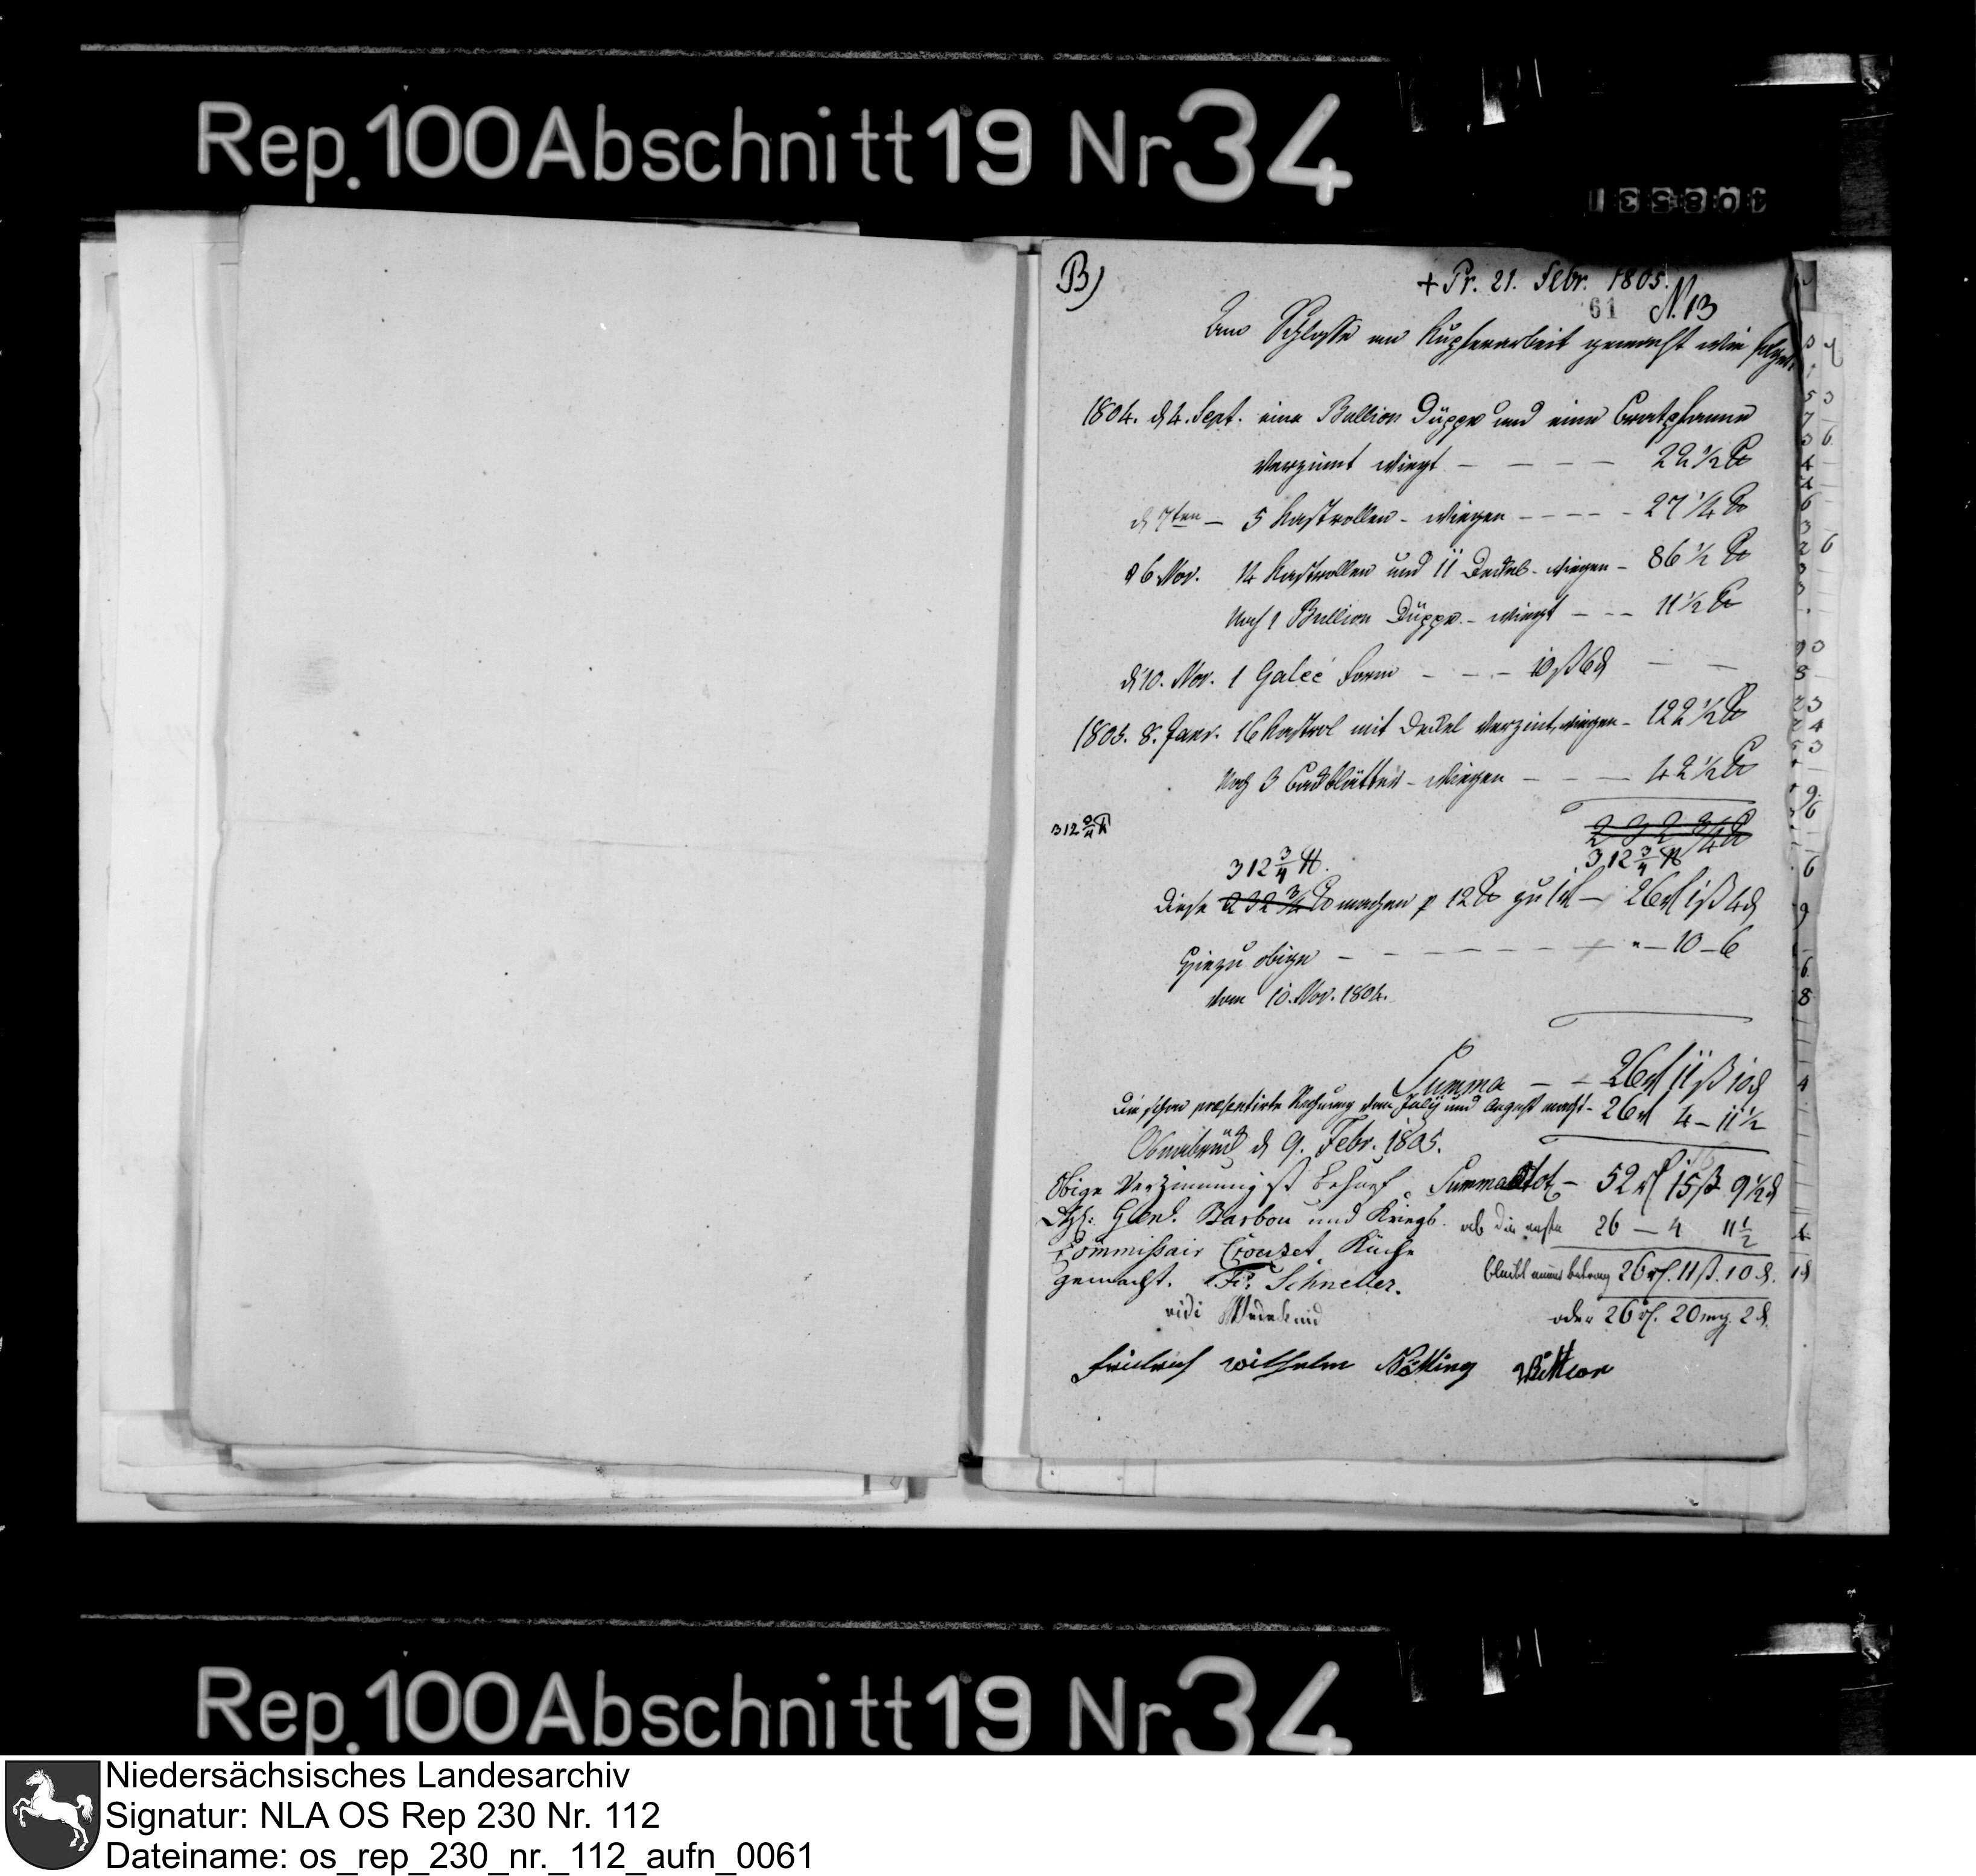 Rep. 100 Abschnitt 19 Nr 34
408531
B)
+ Pr. 21. Febr. 1805.
61 N. 13
Schlosse an Kupferarbeit gemacht wie folget.
1804. d 4. Sept. eine Bullion Düppe und eine Bratpfanne
verzinnt wiegt — — — — 22 1/2 ℔
d 7ten — 5 Kastrollen - wiegen — — — — 27 1/4 ℔
d 6 Nov. 14 Kastrollen und 11 Deckel - wiegen — 86 1/2 ℔
Noch 1 Bullion Düppe - wiegt — — — 11 1/2 ℔
d 10. Nov. 1 Galeé Form — — — 10 ß 6 d — —
1805. 8. Janr. 16 Kastrol mit Deckel verzint, wiegen — 122 1/2 ℔
Noch 3 — wiegen — — — 42 1/2 ℔
312 3/4 ℔
232 3/4 ℔
312 3/4 ℔
312 3/4 ℔.
Diese 232 3/4 ℔ machen p 12 ℔ zu 1 rt — 26 rt 1 ß 4 d
Hiezu obige — — — — — — " — 10 — 6
vom 10. Nov. 1804.
Summa — — 26 rt 11 ß 10 d
Die schon præsentirte Rechnung vom July und August macht — 26 rt 4 — 11 1/2
Osnabrück d 9. Febr. 1805.
Summa tot — 52 rt 15 ß 9 1/2 d
Obige Verzinnung ist Behuef
Genl. Barbou und Kriegs
ab die erste 26 — 4 11 1/2
Commissair Crouzet Küche
gemacht. Fr. Schneller.
bleibt Betrag 26 rt. 11 ß. 10 d.
vidi Wedekind
oder 26 rt. 20 mg. 2 d.
Friedrich Wilhelm Nölting
Rep. 100 Abschnitt 19 Nr 34
Niedersächsisches Landesarchiv
Signatur: NLA OS Rep 230 Nr. 112
Dateiname: os_rep_230_nr._112_aufn_0061